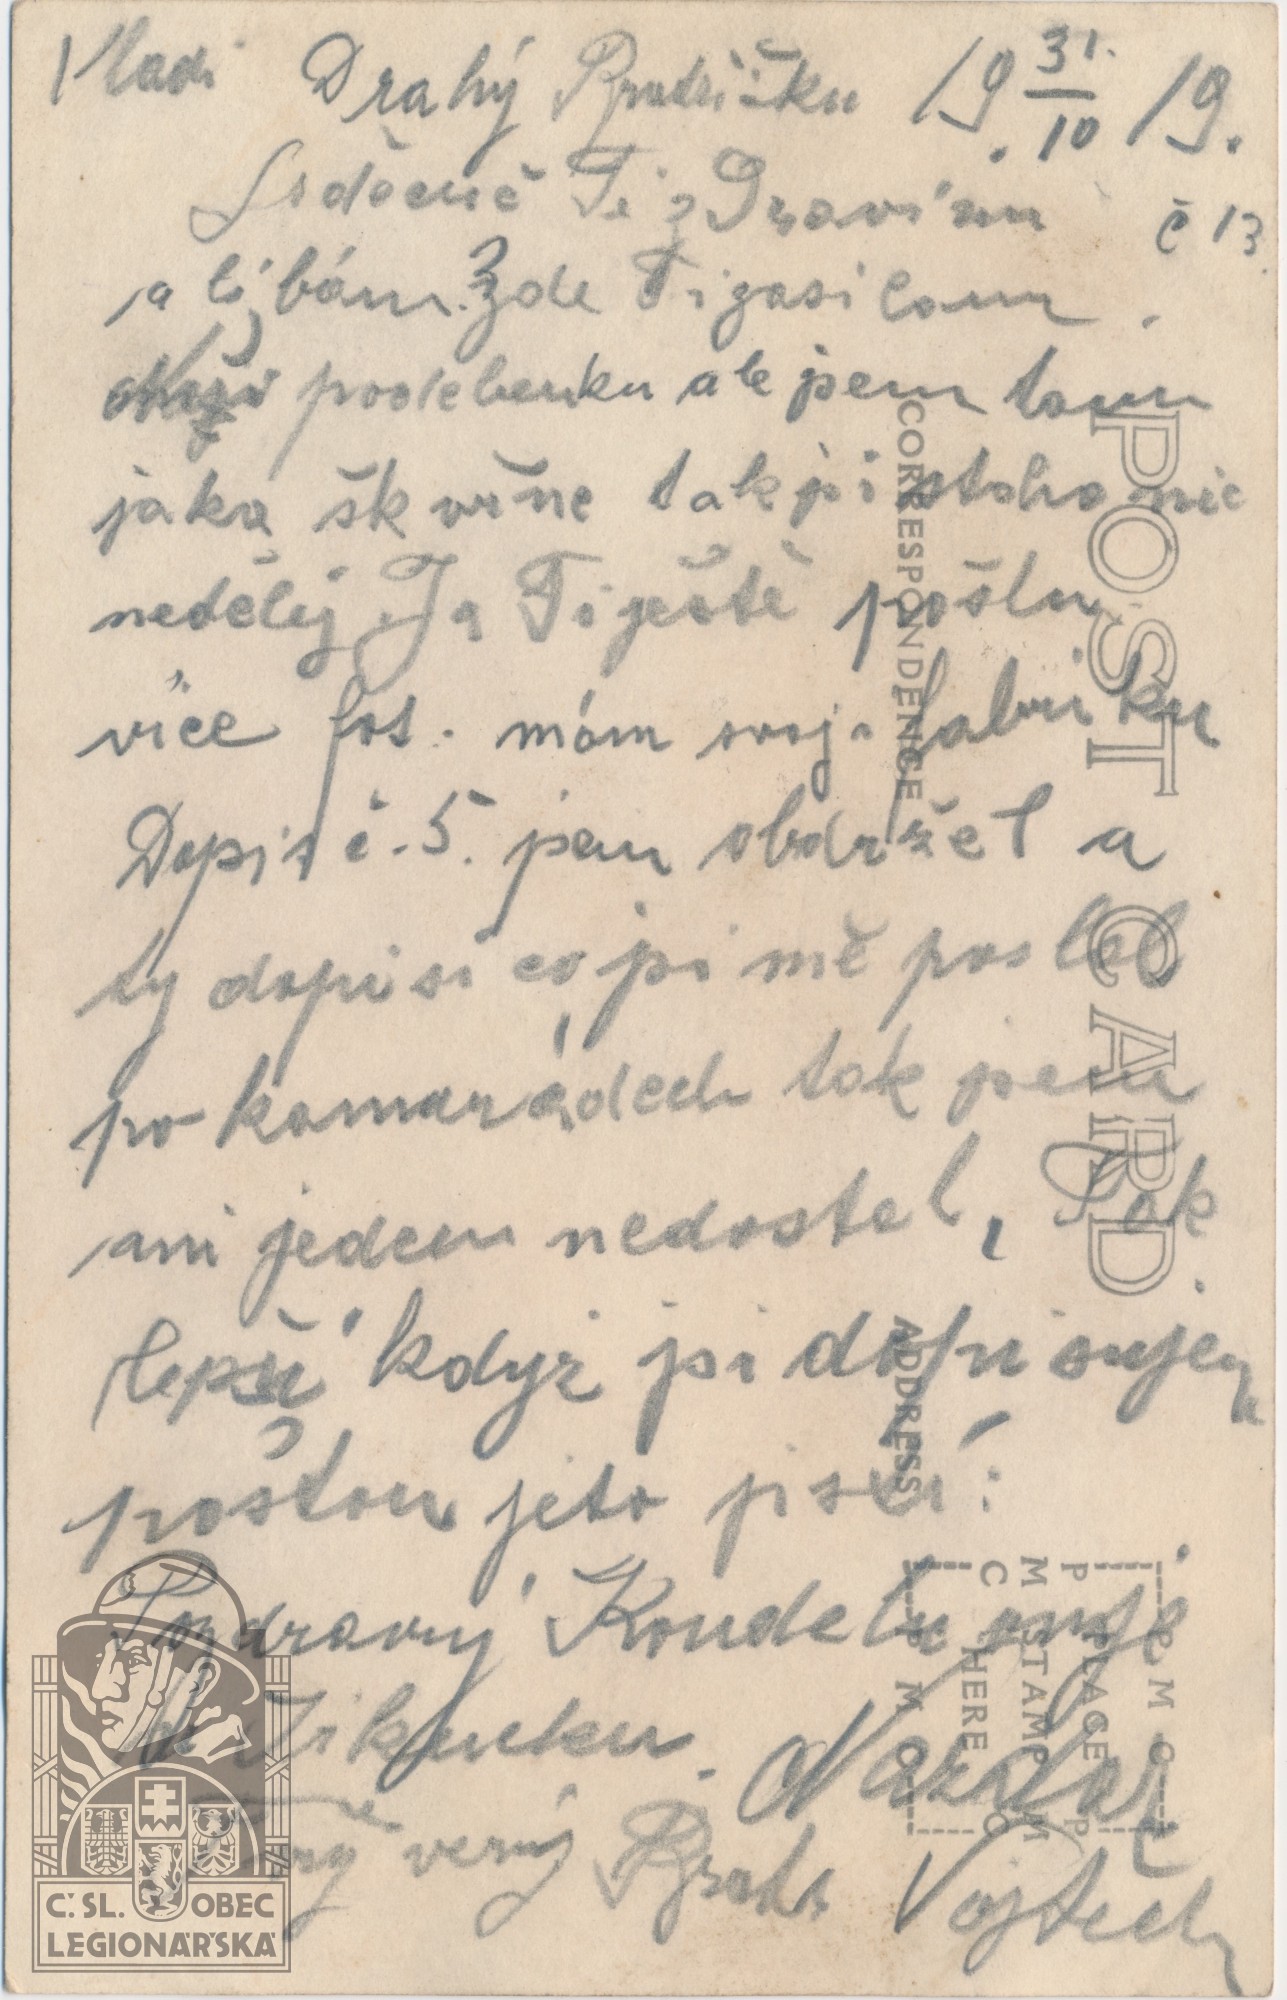 Vladi Drahý Bratříčku 19. 31./10 19.
Srdečně Ti zDravím č 13.
a líbám. Zde Ti zasilam
podebenku ale jsem tam
jako škvrňe tak si stoho nic
nedělej Ja Ti ješte pošlu
více fot. mám svoji fabriku
Dopis č. 5. jsem obdržel a
ty dopisi co si mě poslal
po kamarádech tak jsem
ani jeden nedostal, Jak
lepší když si dopisujem
poštou jeto jisti:
Pozdravuj Koudelu
Nazdar
Tvůj verný Bratr Vojtěch
POST CARD
CORRESPONDENCE
ADDRESS
PLACE
STAMP
HERE
Č. SL. OBEC
LEGIONÁŘSKÁ